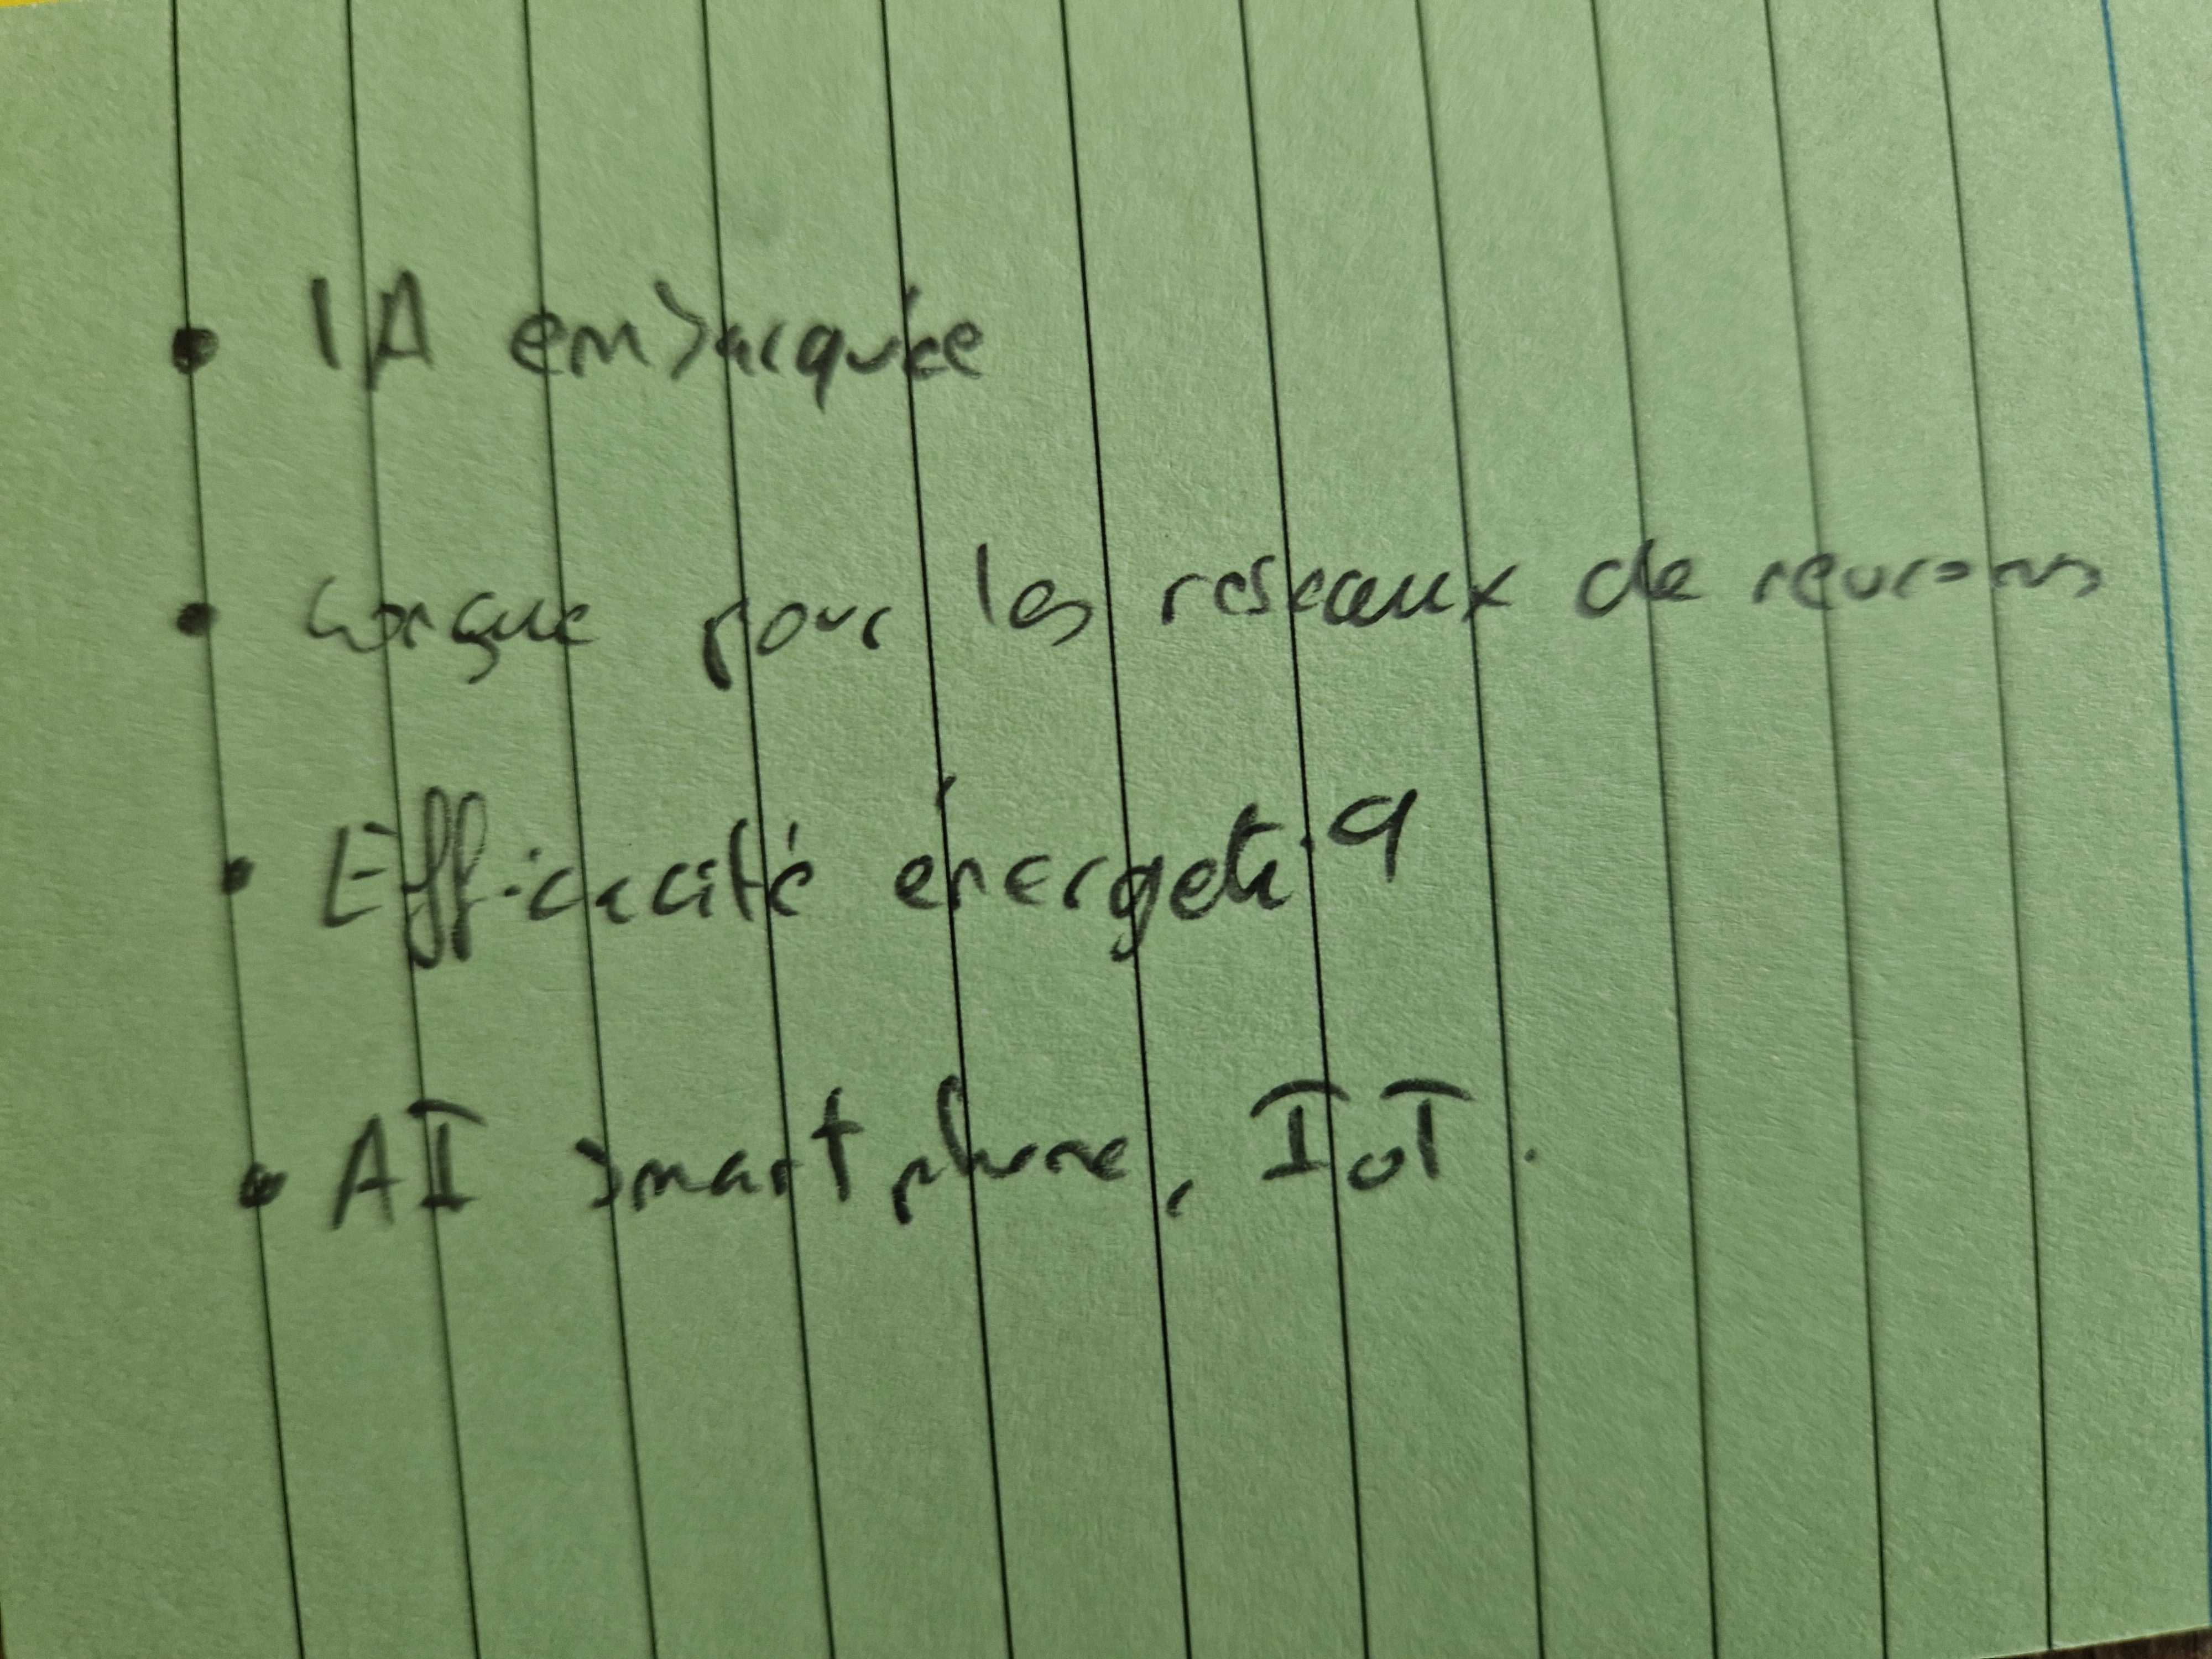 • IA embarquée
• conçue pour les reseaux de neurones
• Efficacité énergeti q
• AI smartphone, IoT.